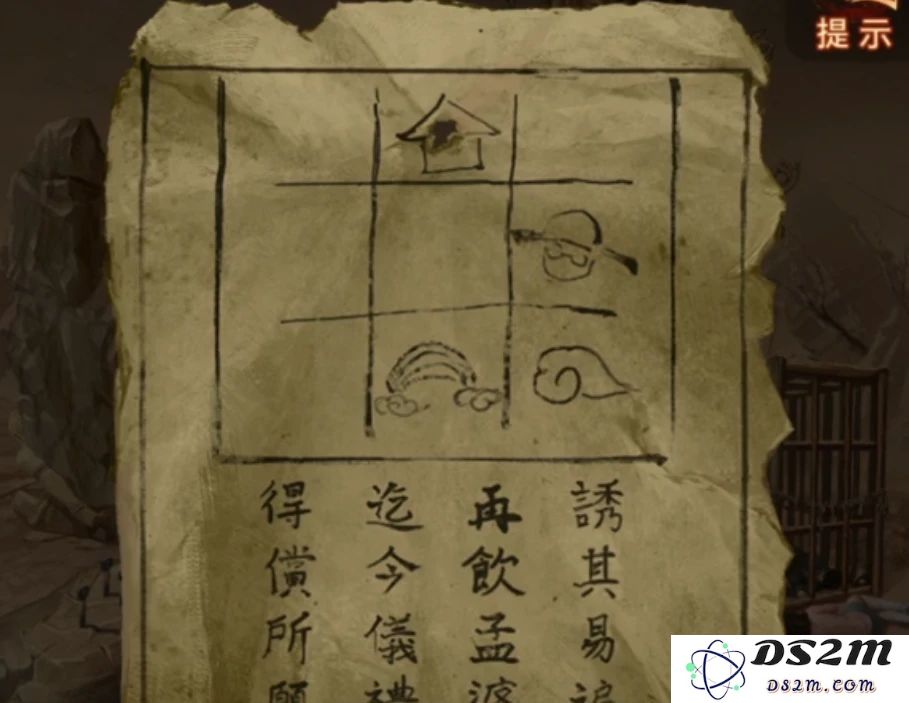 提示
誘其易
再飲孟婆
迄今儀禮
得償所願
DS2M
DS2M.COM